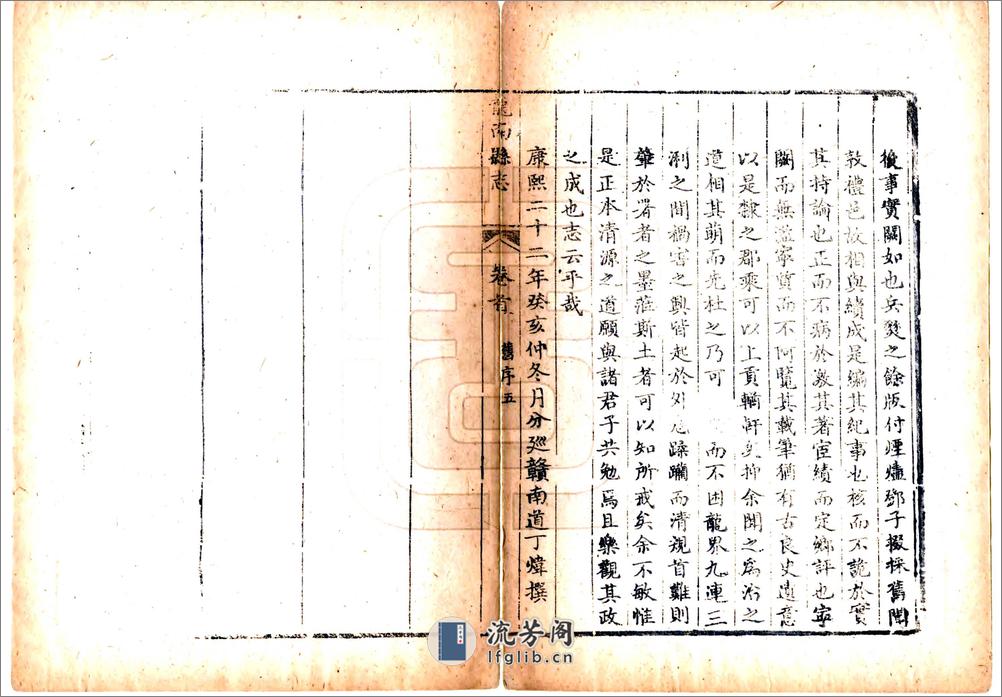 後事實闕如也兵燹之餘版付煙燼鄧子掇採舊聞
敦禮邑故相與續成是編其紀事也核而不詭於實
其持論也正而不病於激其著宦績而定鄉評也寧
闕而無濫寧質而不阿覽其載筆猶有古良史遺意
以是隸之郡乘可以上貢輶軒矣抑余聞之為治之
道相其萌而先杜之乃可 而不困龍界九連三
浰之間禍害之興皆起於外 蹂躪而清規首難則
肇於署者之墨蒞斯土者可以知所戒矣余不敏惟
是正本清源之道願與諸君子共勉焉且樂觀其政
之成也志云乎哉
康熙二十二年癸亥仲冬月分巡贛南道丁煒撰
龍南縣志 卷首 舊序 五
流芳阁
lfglib.cn